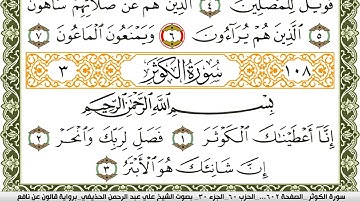 فَوَيْلٌ لِّلْمُصَلِّينَ ٤ ٱلَّذِينَ هُمْ عَن صَلَاتِهِمْ سَاهُونَ
٥ ٱلَّذِينَ هُمْ يُرَآءُونَ ٦ وَيَمْنَعُونَ ٱلْمَاعُونَ ٧
١٠٨ سُورَةُ ٱلْكَوْثَرِ ٣
بِسْمِ ٱللَّهِ ٱلرَّحْمَٰنِ ٱلرَّحِيمِ
إِنَّآ أَعْطَيْنَٰكَ ٱلْكَوْثَرَ ١ فَصَلِّ لِرَبِّكَ وَٱنْحَرْ ٢
إِنَّ شَانِئَكَ هُوَ ٱلْأَبْتَرُ ٣
سورة الكوثر_الصفحة ٦٠٢_الحزب ٦٠_الجزء ٣٠_بصوت الشيخ علي عبد الرحمن الحذيفي_برواية قالون عن نافع